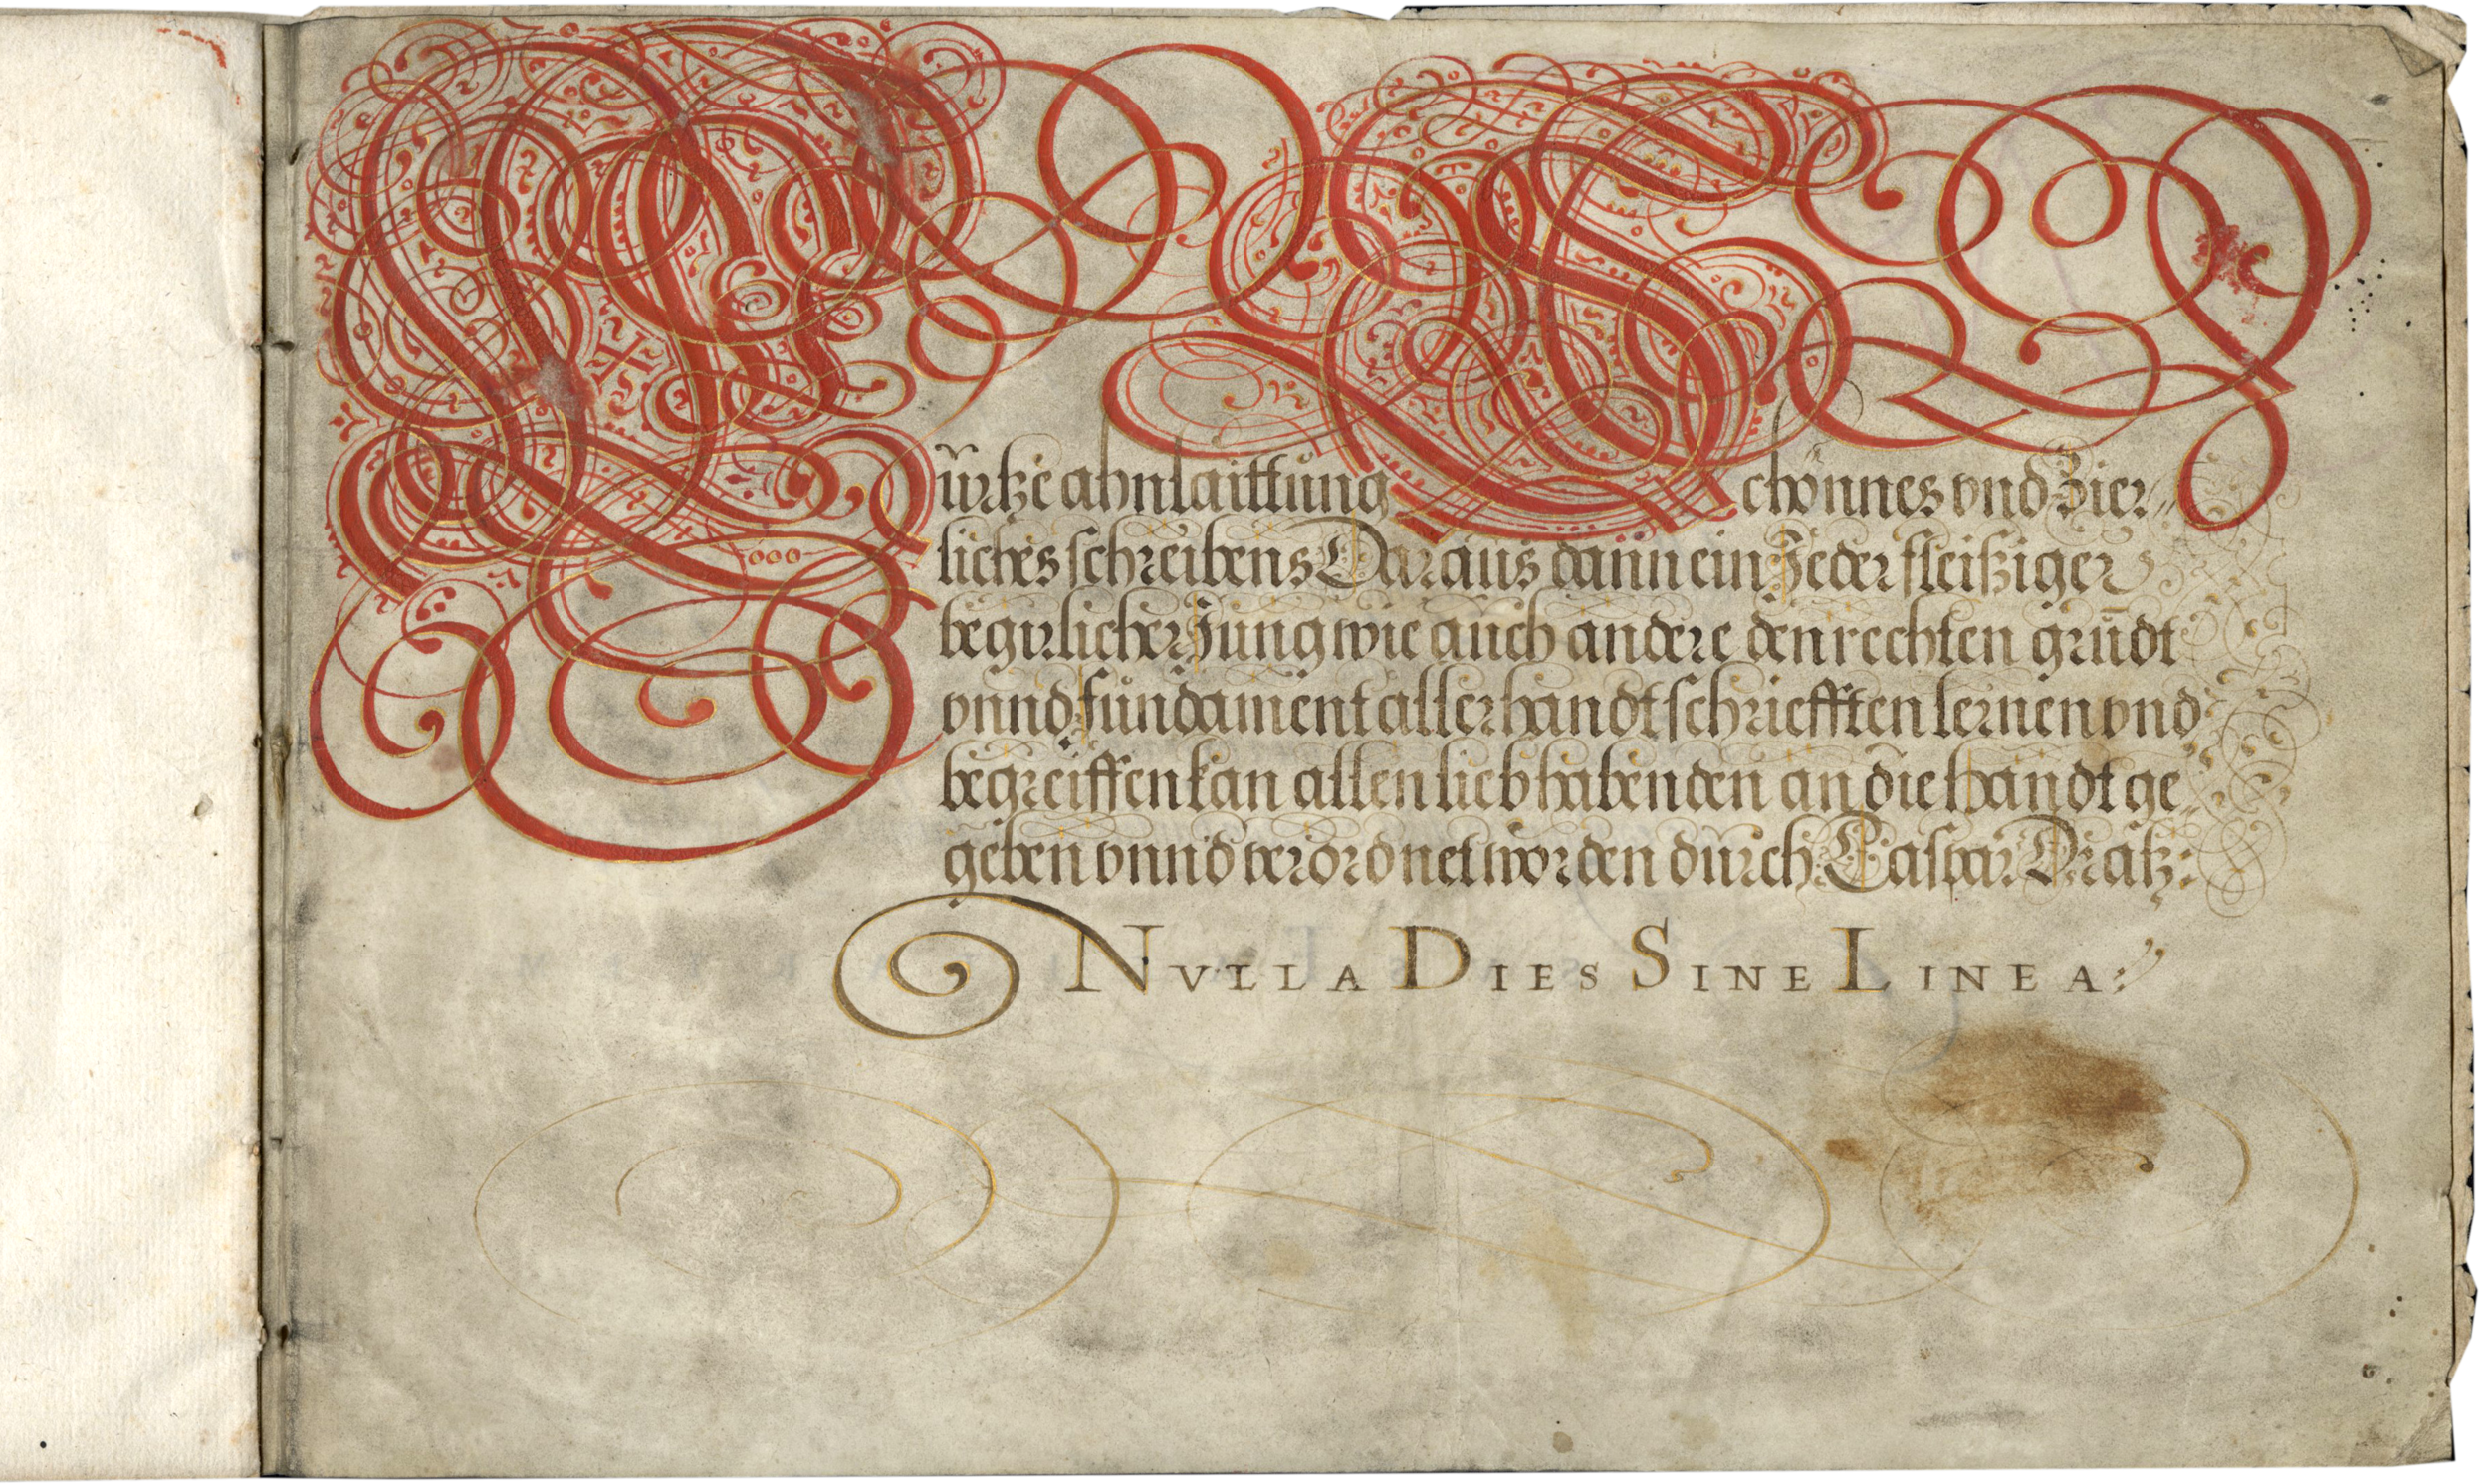 Kürtze ahnlaittung Schönnes vnd Zier-
liches schreibens Daraus dann ein Jeder fleisziger
begirlicher Jüng wie aüch andere den rechten grůndt
vnnd fündament aller handtschriefften lernen vnd
begreiffen kan allen liebhabenden an die handt ge
geben vnnd verordnet worden dürch: Caspar Dratz:
NVLLA DIES SINE LINEA: